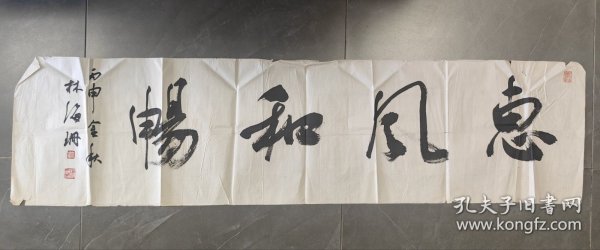 惠風和暢
丙申金秋
林海珊
孔夫子旧书网
www.kongfz.com